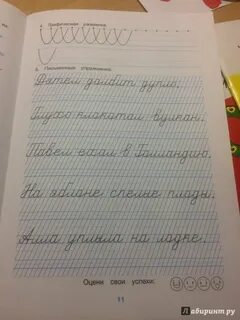 1. Графическая разминка.
2. Письменные упражнения.
Дятел долбит дупло.
Глухо клокотал вулкан.
Павел ехал в Голландию.
На яблоне спелые плоды.
Алла уплыла на лодке.
Оцени свои успехи:
11
Лабиринт.ру